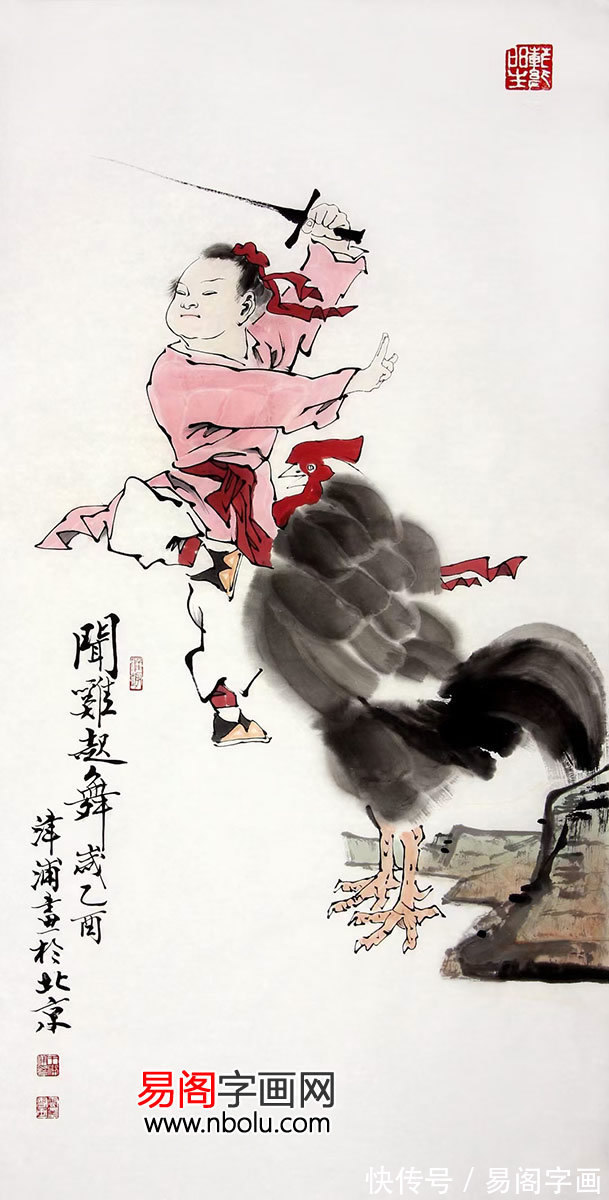 聞雞起舞 歲乙酉
萍浦畫於北京
易阁字画网
www.nbolu.com
快传号 / 易阁字画